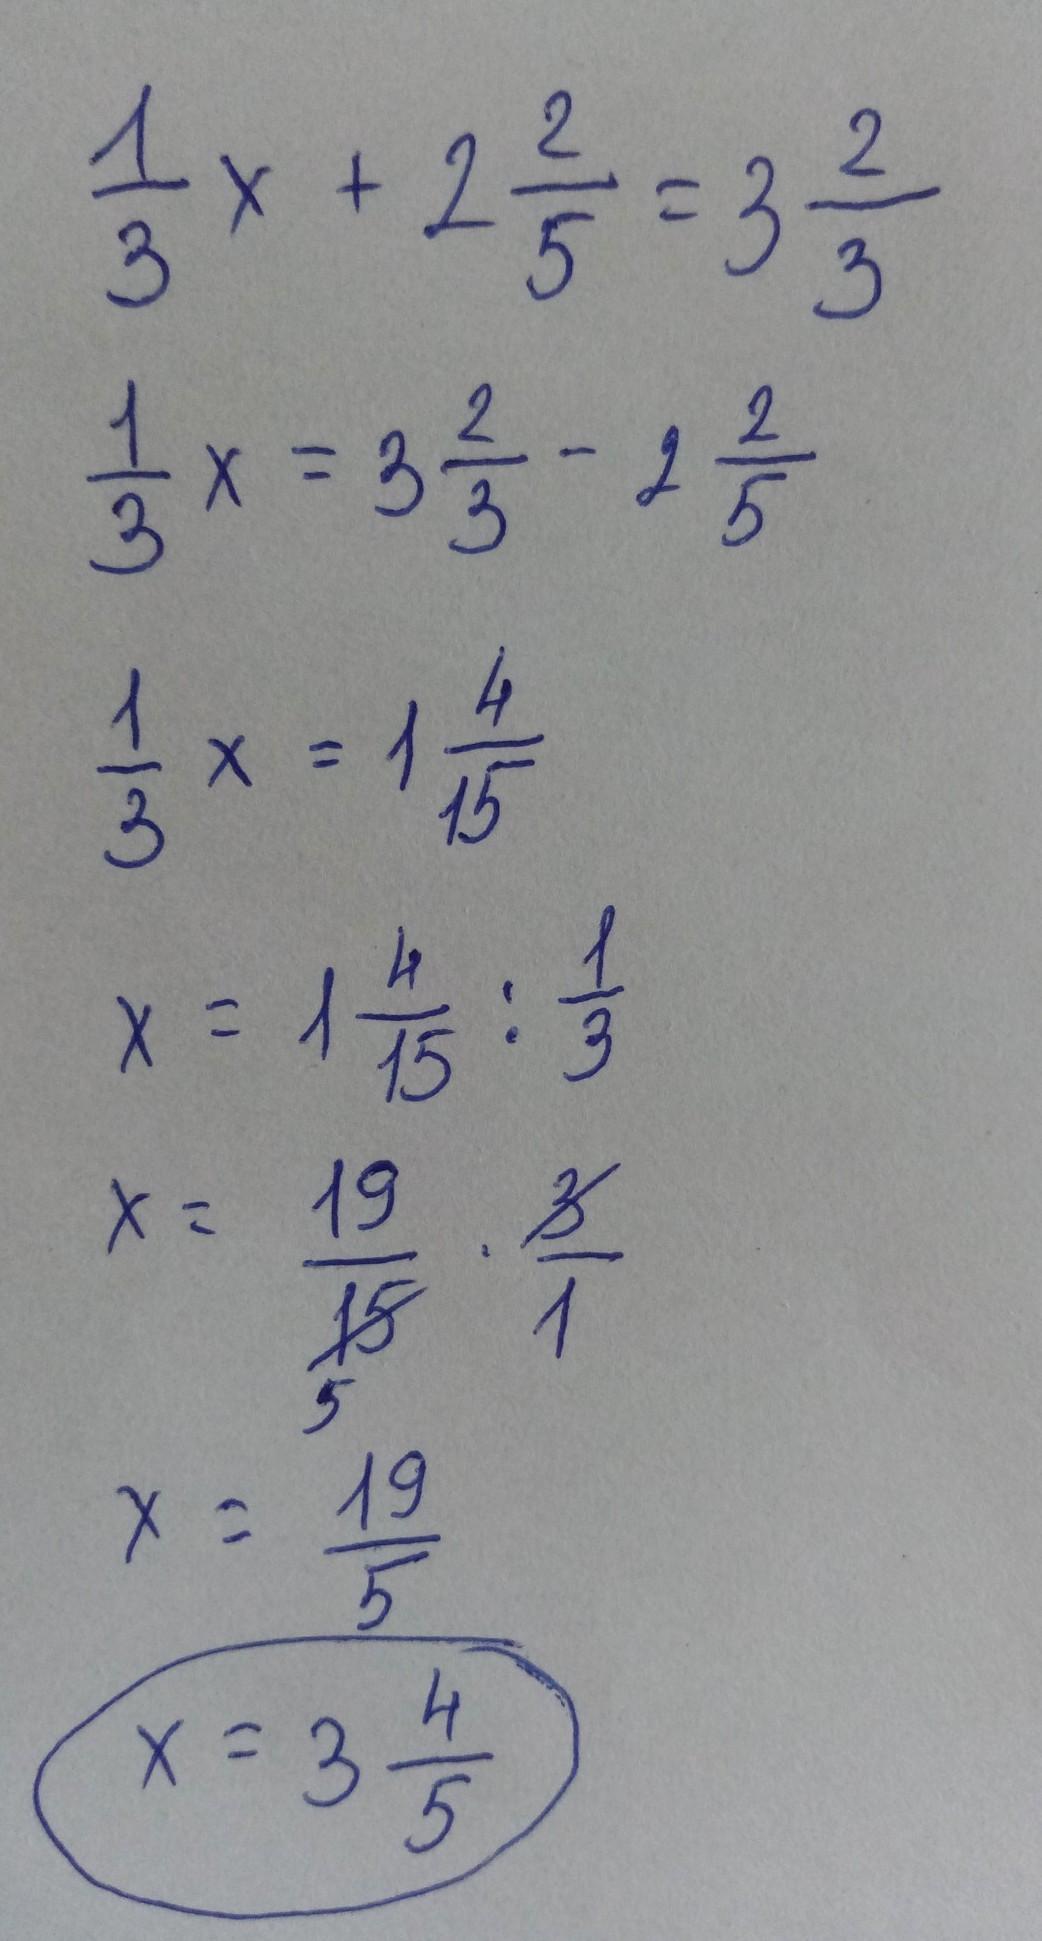 1/3 x + 2 2/5 = 3 2/3
1/3 x = 3 2/3 - 2 2/5
1/3 x = 1 4/15
x = 1 4/15 : 1/3
x = 19/15 · 3/1
5
x = 19/5
x = 3 4/5